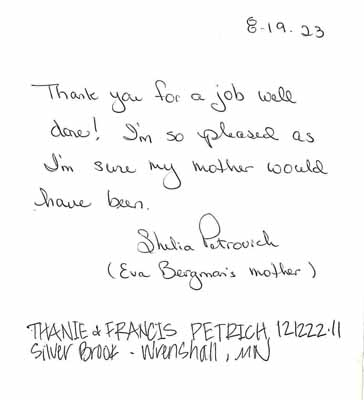 8-19-23
Thank you for a job well
done! I'm so pleased as
I'm sure my mother would
have been.
Shelia Petrovich
(Eva Bergman's mother)
THANIE & FRANCIS PETRICH, 121222.11
Silver Brook - Wrenshall, MN